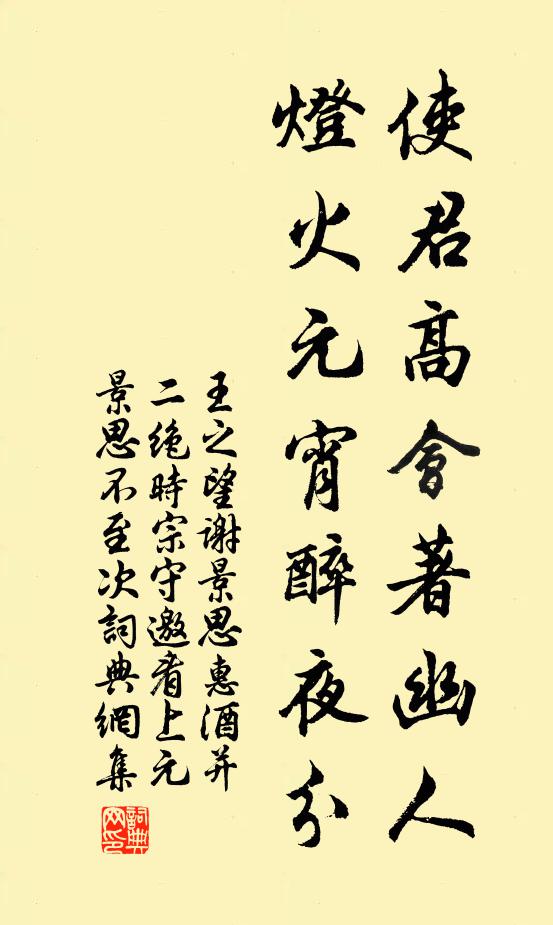 使君高會著幽人
燈火元宵醉夜分
王之望謝景思惠酒并
二絶時宗守邀看上元
景思不至次詞典網集
詞典網印